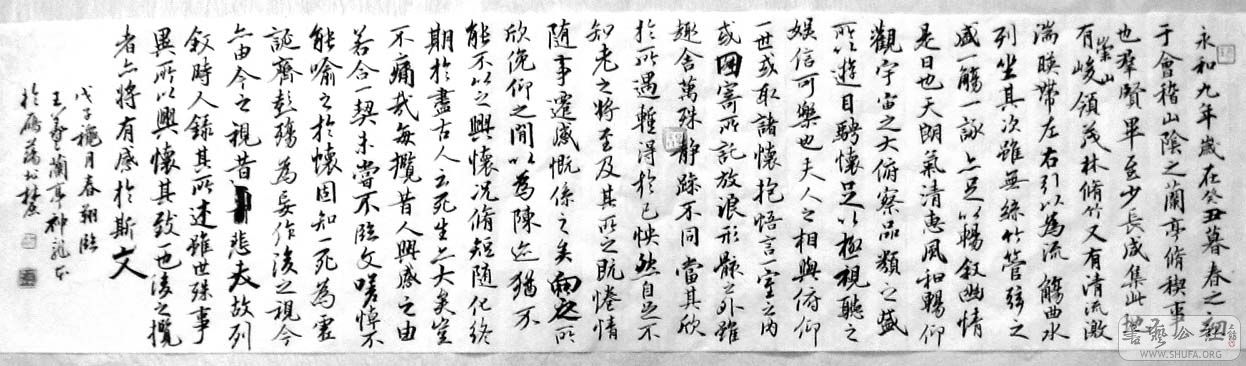 永和九年歲在癸丑暮春之初
于會稽山陰之蘭亭脩稧事
也羣賢畢至少長咸集此地
有崇山峻領茂林脩竹又有清流激
湍暎帶左右引以為流觴曲水
列坐其次雖無絲竹管弦之
盛一觴一詠亦足以暢敘幽情
是日也天朗氣清惠風和暢仰
觀宇宙之大俯察品類之盛
所以遊目騁懷足以極視聽之
娛信可樂也夫人之相與俯仰
一世或取諸懷抱悟言一室之內
或因寄所託放浪形骸之外雖
趣舍萬殊靜躁不同當其欣
於所遇暫得於己怏然自足不
知老之將至及其所之既惓情
隨事遷感慨係之矣向之所
欣俛仰之閒以為陳迹猶不
能不以之興懷況脩短隨化終
期於盡古人云死生亦大矣豈
不痛哉每攬昔人興感之由
若合一契未嘗不臨文嗟悼不
能喻之於懷固知一死為虛
誕齊彭殤為妄作後之視今
亦由今之視昔悲夫故列
敘時人錄其所述雖世殊事
異所以興懷其致一也後之攬
者亦將有感於斯文
戊子穐月春翔臨
王羲之蘭亭神龍本
於
書藝公社
WWW.SHUFA.ORG